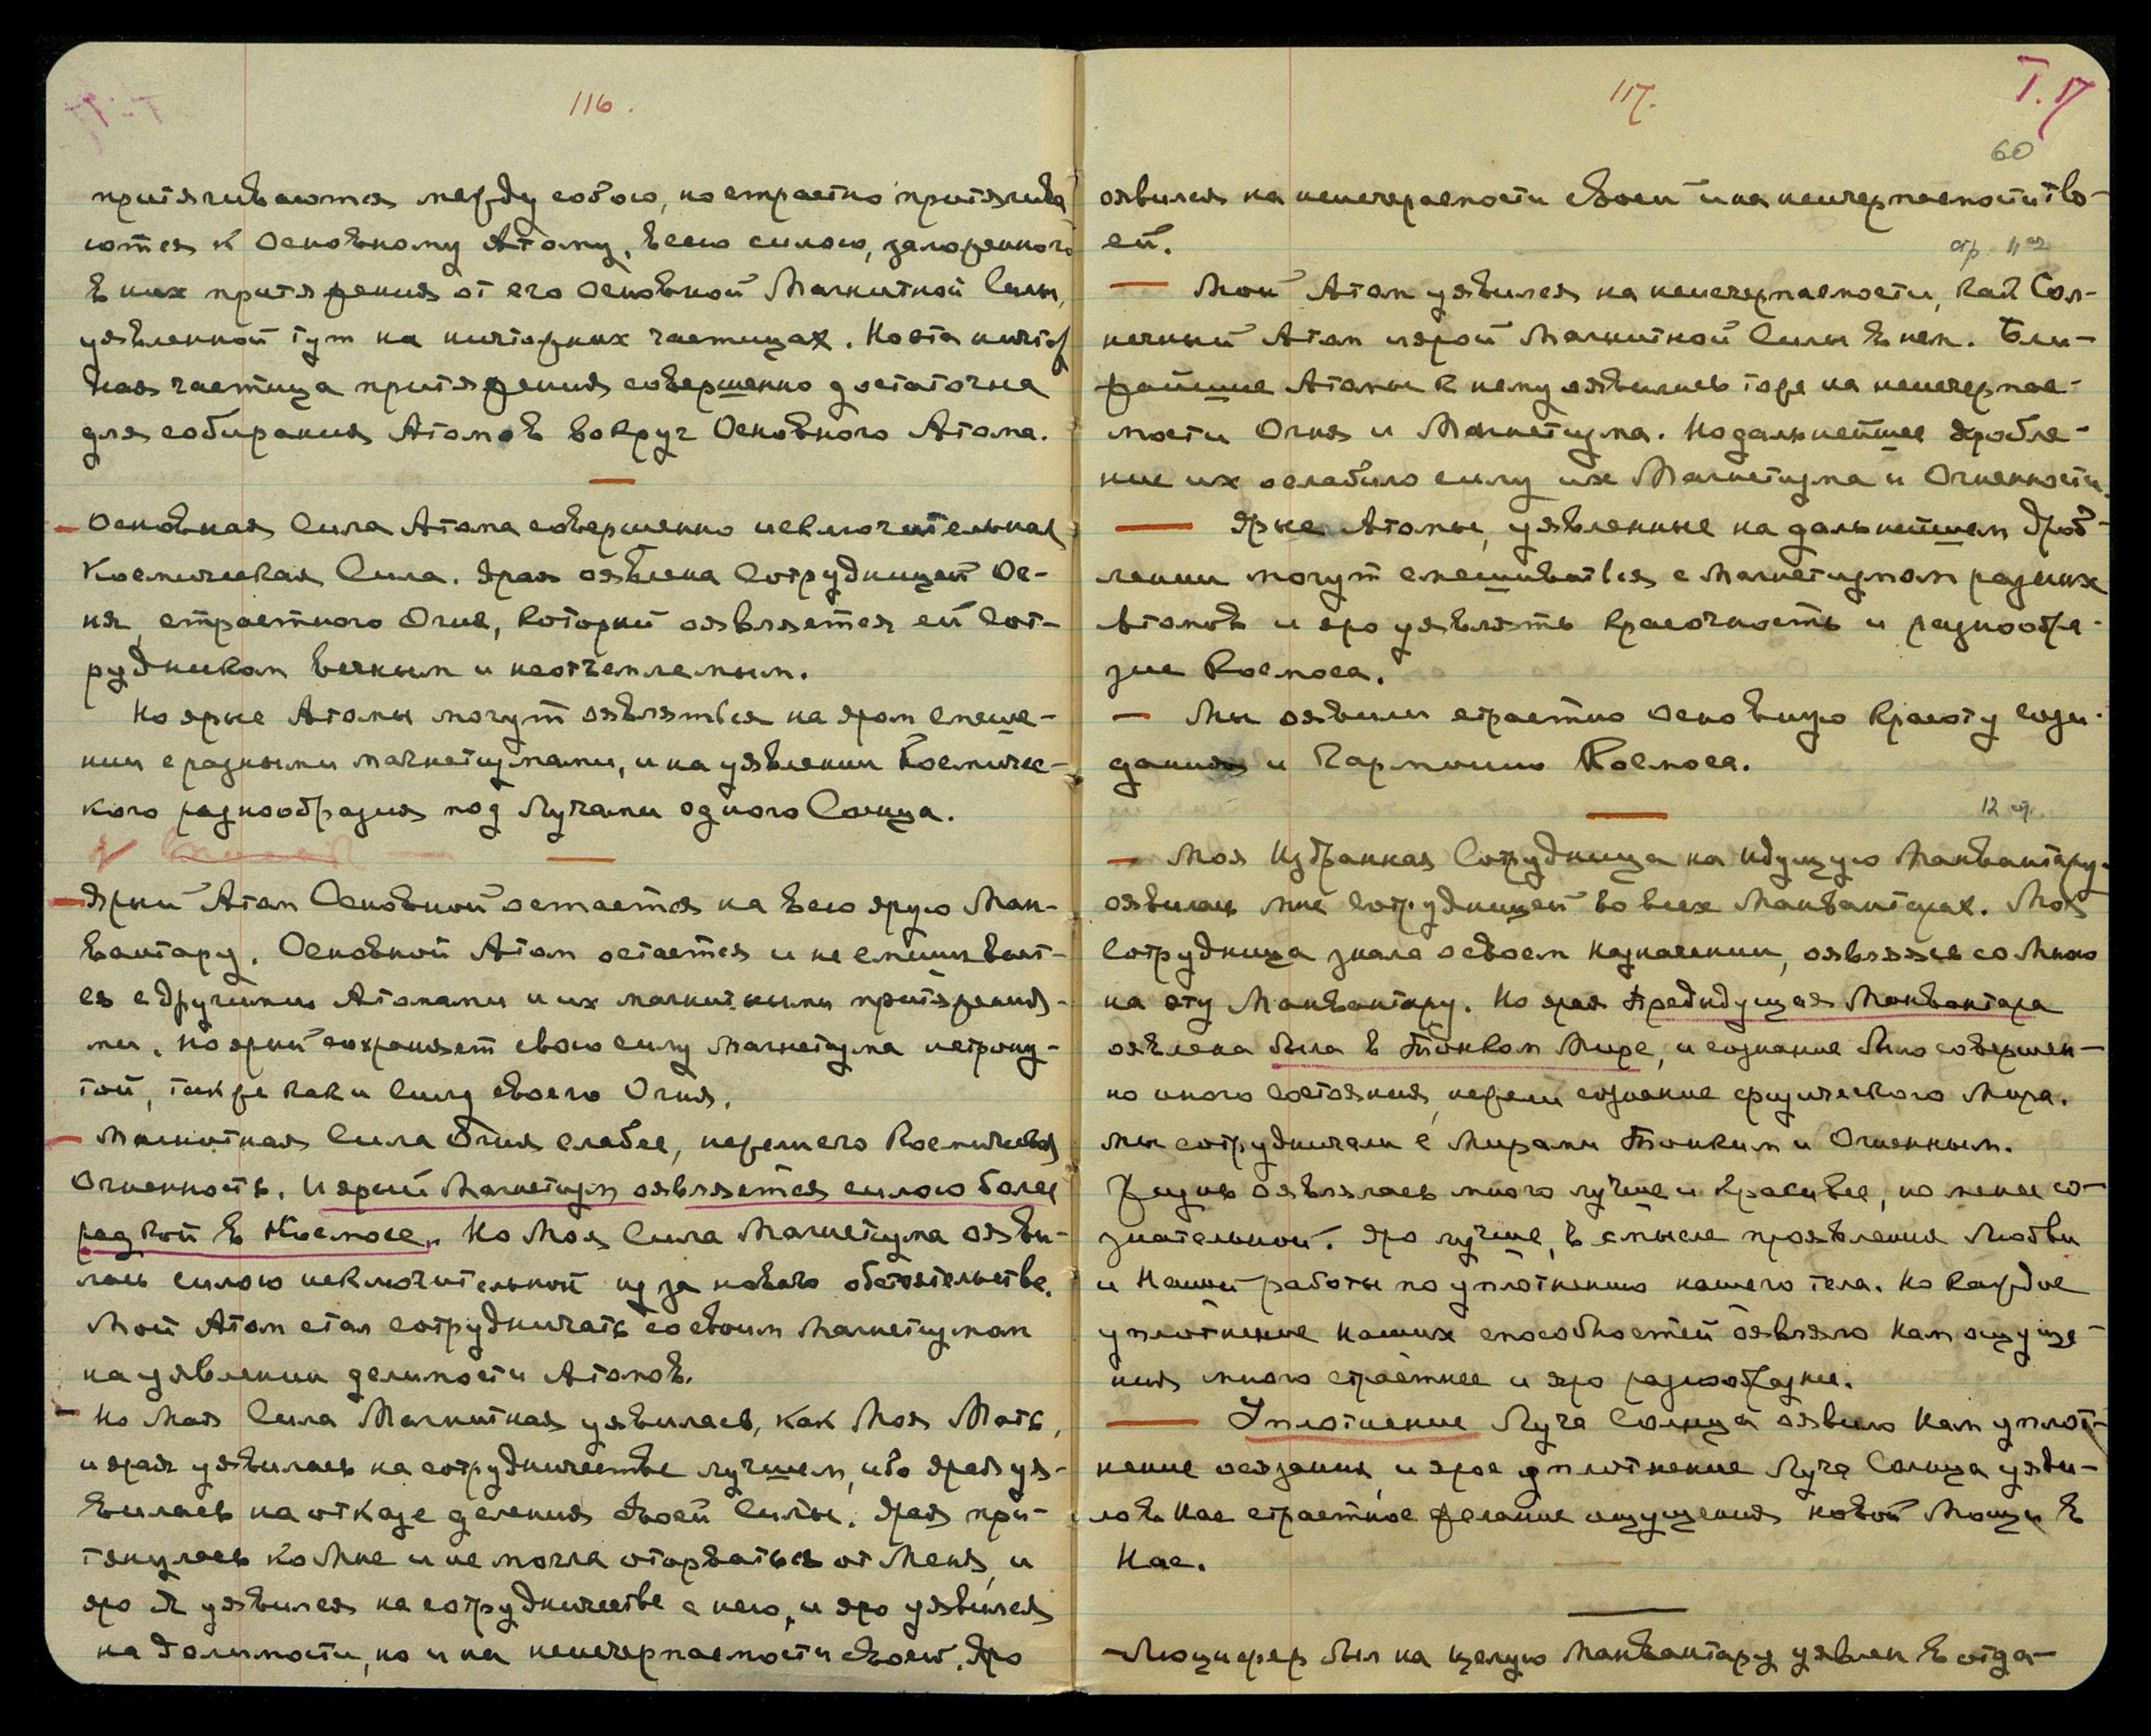 116.
притягиваются между собою, но страстно притягива
ются к Основному Атому, всею силою, заложенного
в них притяжения от его Основной Магнитной Силы,
уявленной тут на ничтожных частицах. Но эта ничтож
ная частица притяжения совершенно достаточна
для собирания Атомов вокруг Основного Атома.
— Основная Сила Атома совершенно исключительная
Космическая Сила. Ярая оявлена Сотрудницей Ог-
ня, страстного Огня, который оявляется ей Сот-
рудником вечным и неотъемлемым.
Но ярые Атомы могут оявляться на яром смеше-
нии с разными магнетизмами, и на уявлении Космичес-
кого разнообразия под Лучами одного Солнца.
— Ярый Атом Основной остается на всю ярую Ман-
вантару. Основной Атом остается и не смешивает-
ся с другими Атомами и их магнитными притяжения-
ми. Но ярый сохраняет свою силу Магнетизма нетрону-
той, также как и Силу своего Огня.
— Магнитная Сила Огня слабее, нежели его Космическая
Огненность. И ярый Магнетизм оявляется силою более
редкой в Космосе. Но Моя Сила Магнетизма ояви-
лась силою исключительной из за нового обстоятельства.
Мой Атом стал сотрудничать со своим Магнетизмом
на уявлении делимости Атомов.
— Но Моя Сила Магнитная уявилась, как Моя Мать,
и ярая уявилась на сотрудничестве лучшем, ибо ярая уя-
вилась на отказе деления Своей Силы. Ярая при-
тянулась ко Мне и не могла оторваться от Меня, и
яро Я уявился на сотрудничестве с нею, и яро уявился
на делимости, но и на неисчерпаемости Своей. Яро
117.
Т. 17
60
оявился на неисчерпаемости Своей и на неисчерпаемости тво-
ей.
стр. 11
— Мой Атом уявился на неисчерпаемости, как Сол-
нечный Атом и ярой Магнитной Силы в нем. Бли-
жайшие Атомы к нему оявились тоже на неисчерпае-
мости Огня и Магнетизма. Но дальнейшее дробле-
ние их ослабило силу их Магнетизма и Огненности.
— Ярые Атомы, уявленные на дальнейшем дроб-
лении могут смешиваться с магнетизмом разных
Атомов и яро уявлять красочность и разнообра-
зие Космоса.
— Мы оявили страстно основную красоту сози-
дания и Гармонию Космоса.
12 стр.
— Моя Избранная Сотрудница на идущую Манвантару
оявилась Мне Сотрудницей во всех Манвантарах. Моя
Сотрудница знала о своем назначении, оявляясь со Мною
на эту Манвантару. Но ярая предидущая Манвантара
оявлена была в Тонком Мире, и сознание было совершен-
но иного состояния, нежели сознание физического Мира.
Мы сотрудничали с Мирами Тонким и Огненным.
Жизнь оявлялась много лучше и красивее, но менее со-
знательной. Яро лучше, в смысле проявления Любви
и Нашей работы по уплотнению нашего тела. Но каждое
уплотнение наших способностей оявляло Нам ощуще-
ния много страстнее и яро разнообразнее.
— Уплотнение Луча Солнца оявило Нам уплот-
нение осязания, и ярое уплотнение Луча Солнца уяви-
ло в Нас страстное желание ощущения новой Мощи в
Нас.
— Люцифер был на целую Манвантару уявлен в отда-